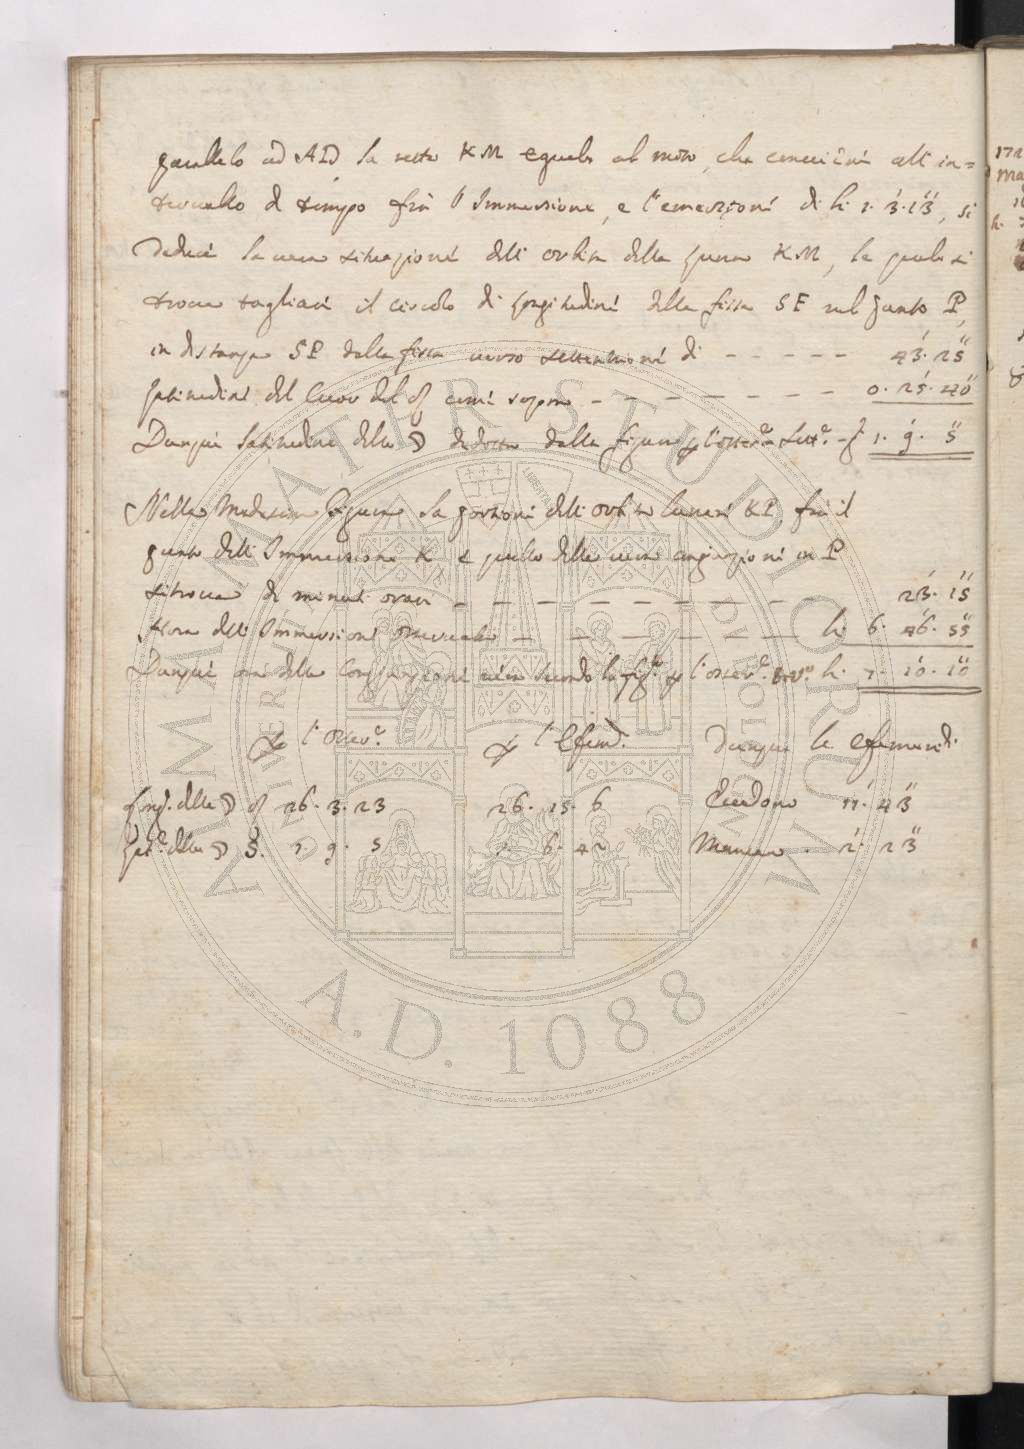 parallelo ad AD la retta KM eguale al moto, che conviene all' in=
tervallo di tempo frà l'Immersione, e l'emersione di h. 1. 3'. 13'', si
deduce la vera situazione dell' orbita della Luna KM, la quale si
trova tagliare il circolo di longitudine della fissa SE nel punto P,
in distanza SP dalla fissa verso settentrione di - - - - - 43'. 25''
Latitudine del cuore del ♌ come sopra - - - - - - - 0. 25'. 40''
Dunque latitudine della ☽ dedotta dalla figura p l'osserva. Sett.e - 1. 9'. 5''
Nella medesima figura la porzione dell' orbita lunare KP frà il
punto dell' Immersione K, e quello della vera congiunzione in P
si trova di minuti orari - - - - - - - - 23'. 15''
Hora dell' Immersione osservata - - - - - - h. 6. 46'. 55''
Dunque ora della Congiunzione vera secondo la fig.a p l'osserv.e h. 7. 10'. 10''
p l'Osserv.e p l'Efem.di Dunque le efemeridi
Long. della ☽ ♌ 26. 3. 23 26. 15. 6 Eccedono 11'. 43''
Lat. della ☽ S. 1. 9. 5 1. 6. 42 Mancano . 2'. 23''
ALMA MATER STUDIORUM
A.D. 1088